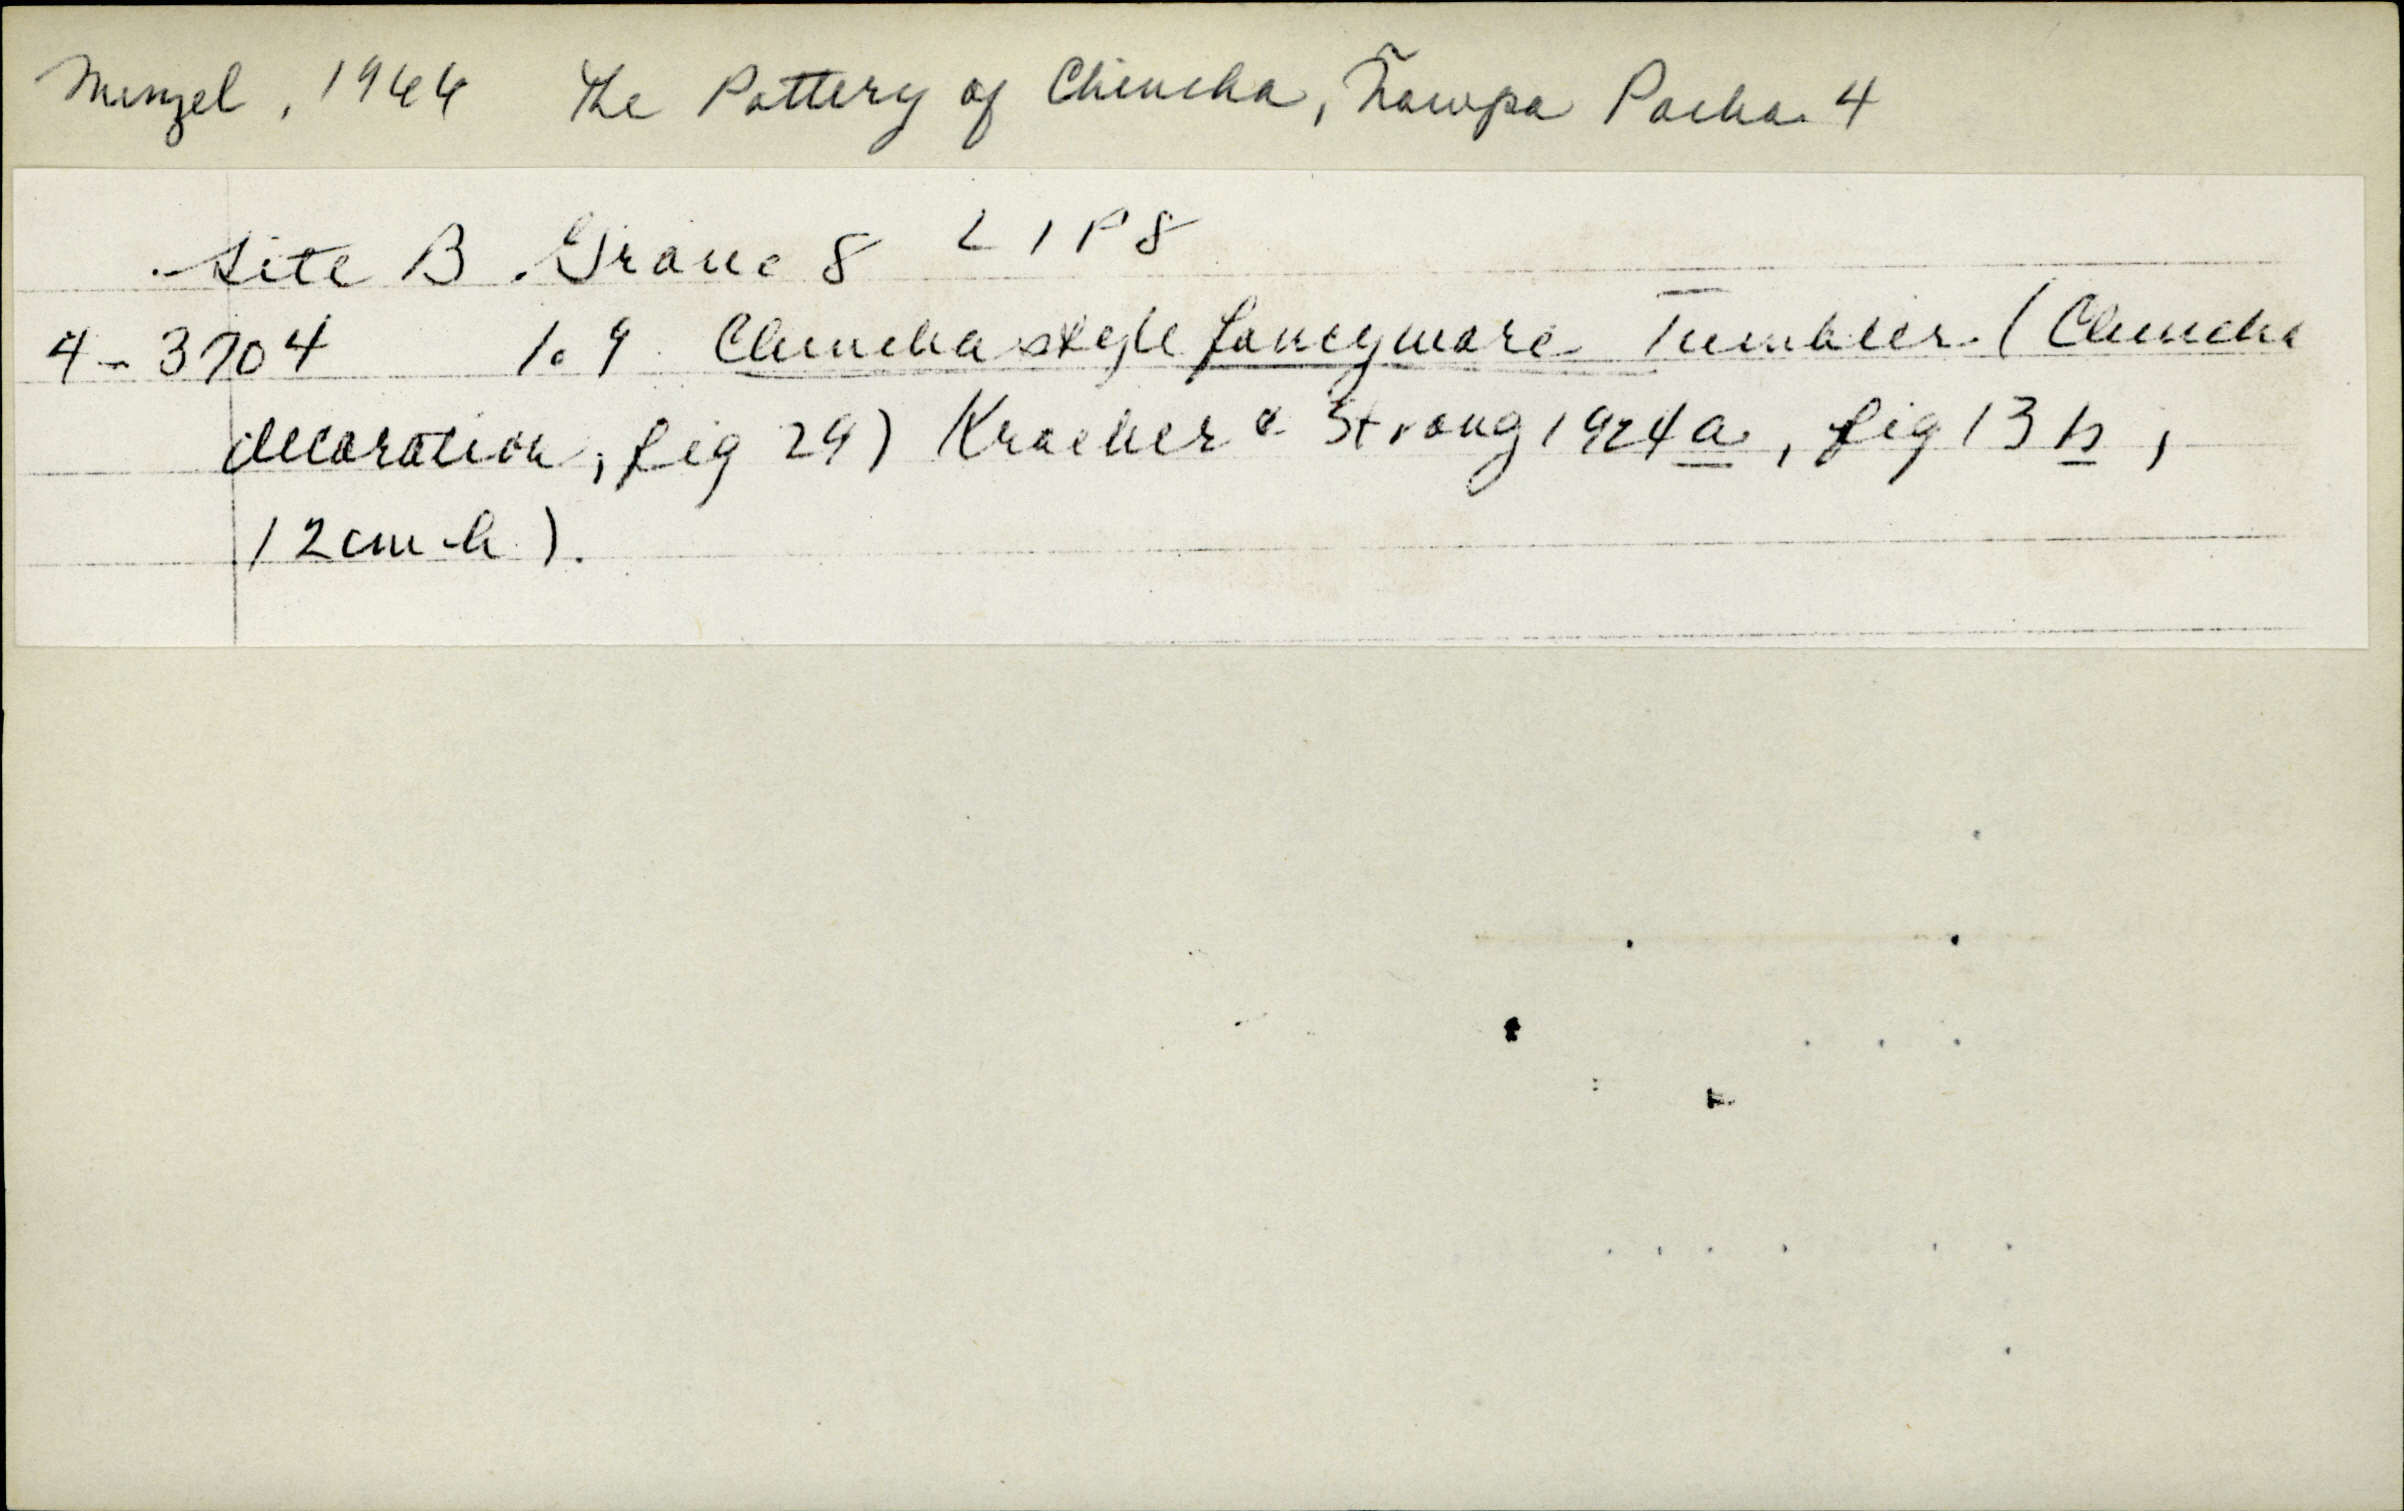 Menzel, 1966 The Pottery of Chincha, Ñawpa Pacha 4
Site B Grave 8 LIP8
4-3704 1.9 Chincha style fancyware Tumbler (Chincha
decoration, fig 29) Kroeber & Strong 1924a, fig 13h,
12cm-h).